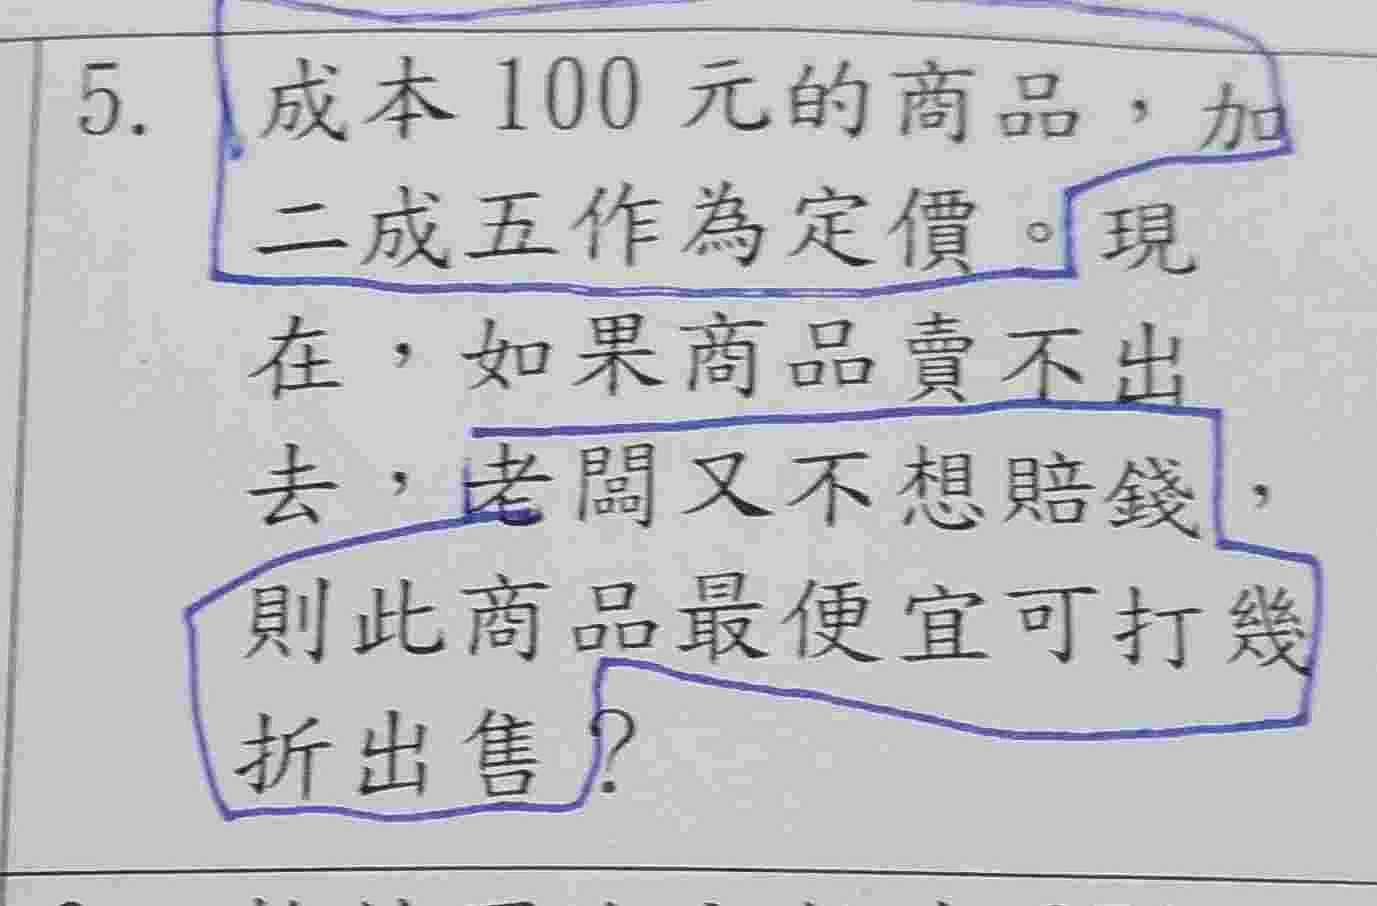 5. 成本 100 元的商品，加
二成五作為定價。現
在，如果商品賣不出
去，老闆又不想賠錢，
則此商品最便宜可打幾
折出售？